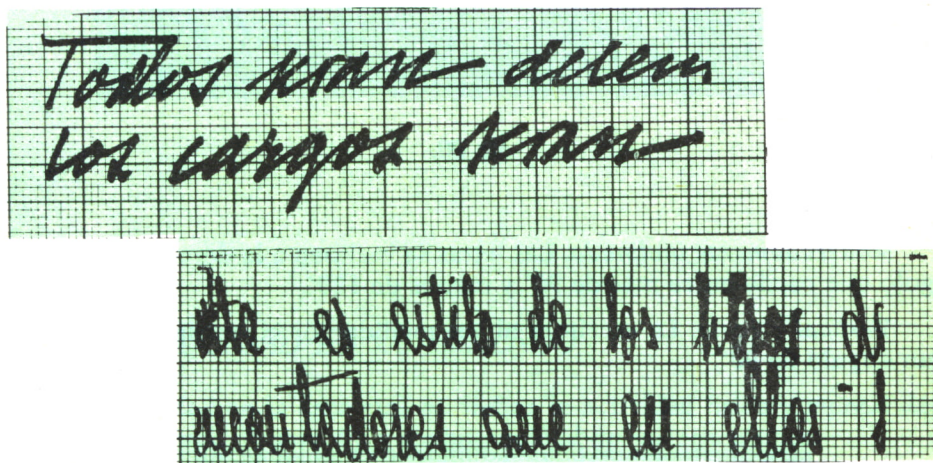 Todos seran
los cargos seran
este es estilo de los libros de
montadores que en ellos